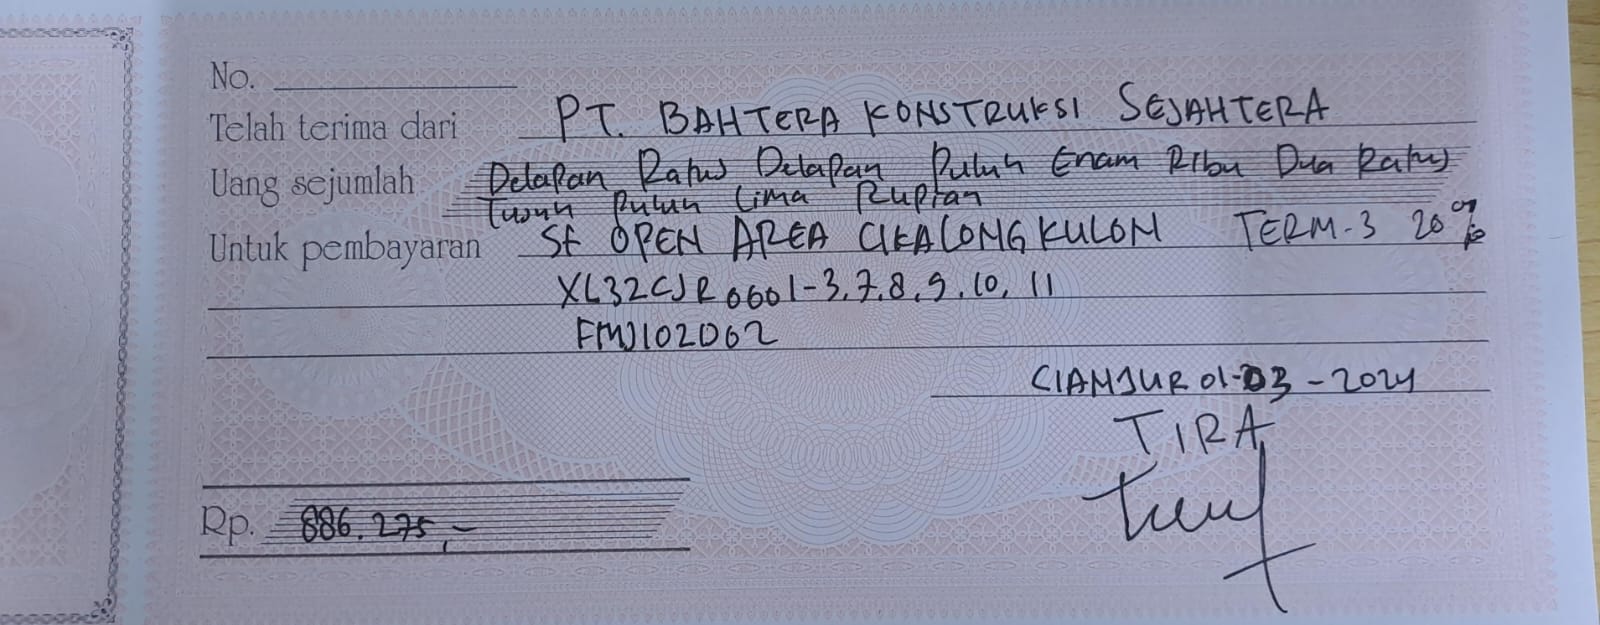 No.
Telah terima dari PT. BAHTERA KONSTRUKSI SEJAHTERA
Uang sejumlah Delapan Ratus Delapan Puluh Enam Ribu Dua Ratus
Tujuh Puluh Lima Rupiah
Untuk pembayaran SF OPEN AREA CIKALONG KULON TERM-3 20%
XL32CJR0601-3.7.8.9.10.11
CIANJUR 01-03-2024
TIRA
Rp. 886.275,-